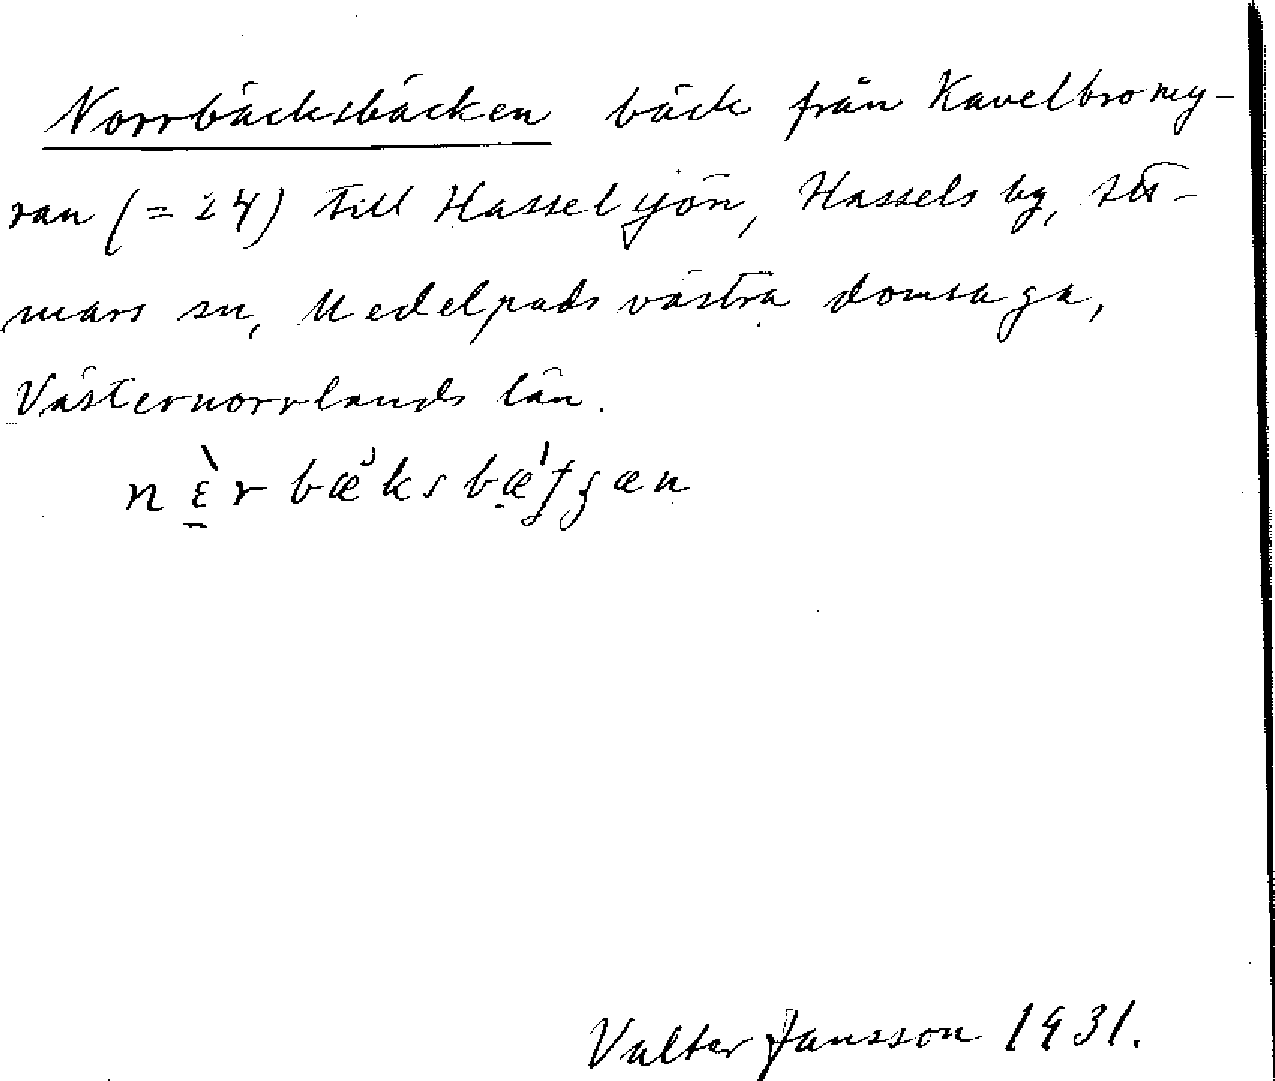 Norrbäcksbäcken bäck från Kavelbromy-
ran (= 24) till Hasselsjön, Hassels by, Stö-
mars sn, Medelpads västra domsaga,
Västernorrlands län.
Valter Jansson 1931.